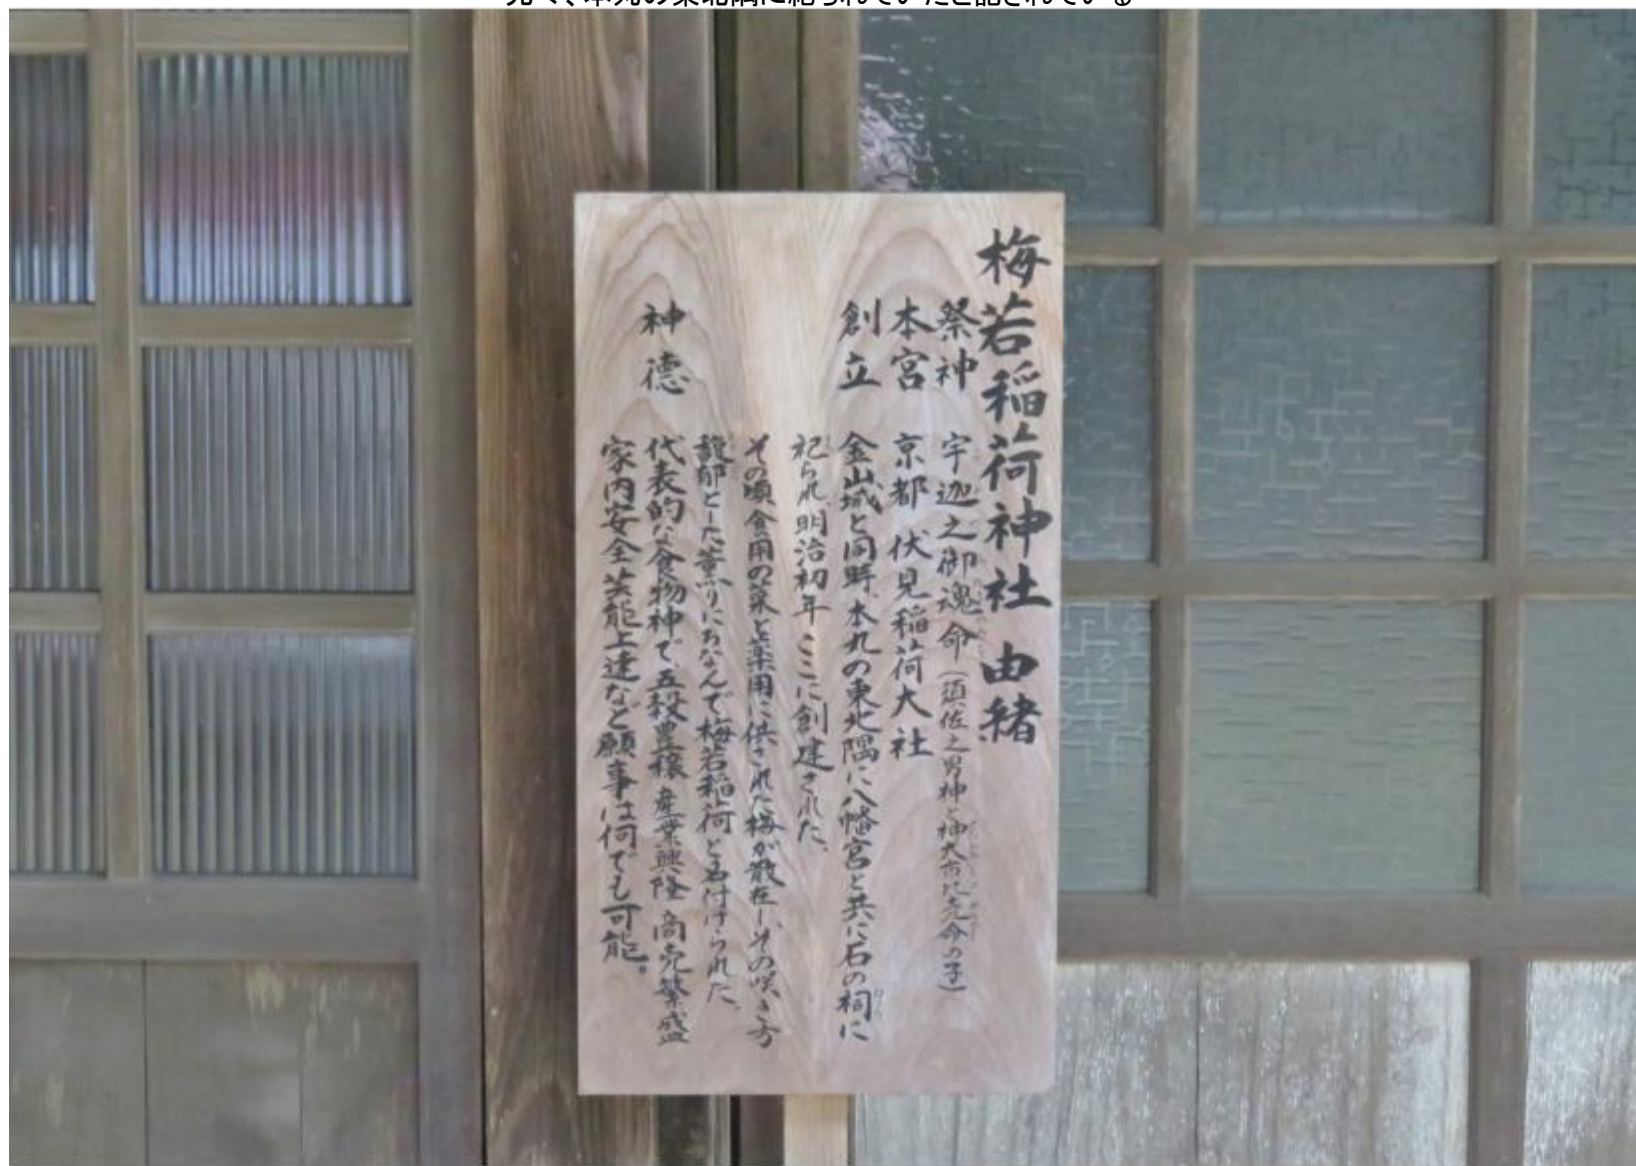 元々、本丸の東北隅に祀られていたと記されている
梅若稲荷神社 由緒
祭神 宇迦之御魂命(須佐之男神と神大市比売命の子)
本宮 京都 伏見稲荷大社
創立 金山城と同時、本丸の東北隅に八幡宮と共に石の祠に
祀られ、明治初年、ここに創建された、
その頃食用の菜と薬用に供された梅が散在し、その咲き方
馥郁とした薫りにちなんで梅若稲荷と名付けられた、
神徳 代表的な食物神で、五穀豊穣 産業興隆 商売繁盛
家内安全 芸能上達など願事は何でも可能。